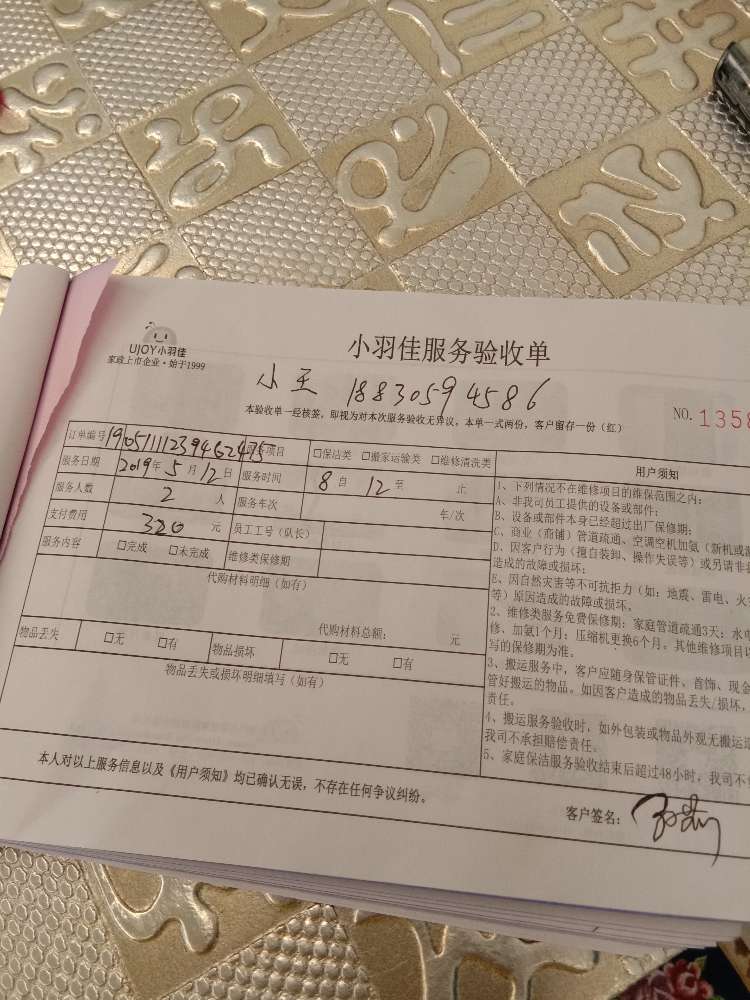 UJOY小羽佳
家政上市企业·始于1999
小羽佳服务验收单
小王 18830594586
本验收单一经核签，即视为对本次服务验收无异议。本单一式两份，客户留存一份（红）
NO. 1358
订单编号 服务项目 □保洁类 □搬家运输类 □维修清洗类
服务日期 2019年 5月 12日 服务时间 8 自 12 至 止
服务人数 2 人 服务车次 年/次
支付费用 320 元 员工工号（队长）
服务内容 □完成 □未完成 维修类保修期
代购材料明细（如有）
代购材料总额： 元
物品丢失 □无 □有 物品损坏 □无 □有
物品丢失或损坏明细填写（如有）
用户须知
1、下列情况不在维修项目的维保范围之内：
A、非我司员工提供的设备或部件；
B、设备或部件本身已经超过出厂保修期；
C、商业（商铺）管道疏通、空调空机加氨（新机或
D、因客户行为（擅自装卸、操作失误等）或另请非
造成的故障或损坏；
E、因自然灾害等不可抗拒力（如：地震、雷电、火
等）原因造成的故障或损坏。
2、维修类服务免费保修期：家庭管道疏通3天；水
修、加氨1个月；压缩机更换6个月。其他维修项目
写的保修期为准。
3、搬运服务中，客户应随身保管证件、首饰、现金
管好搬运的物品。如因客户造成的物品丢失/损坏，
责任。
4、搬运服务验收时，如外包装或物品外观无搬运
我司不承担赔偿责任。
5、家庭保洁服务验收结束后超过48小时，我司不
本人对以上服务信息以及《用户须知》均已确认无误，不存在任何争议纠纷。
客户签名：